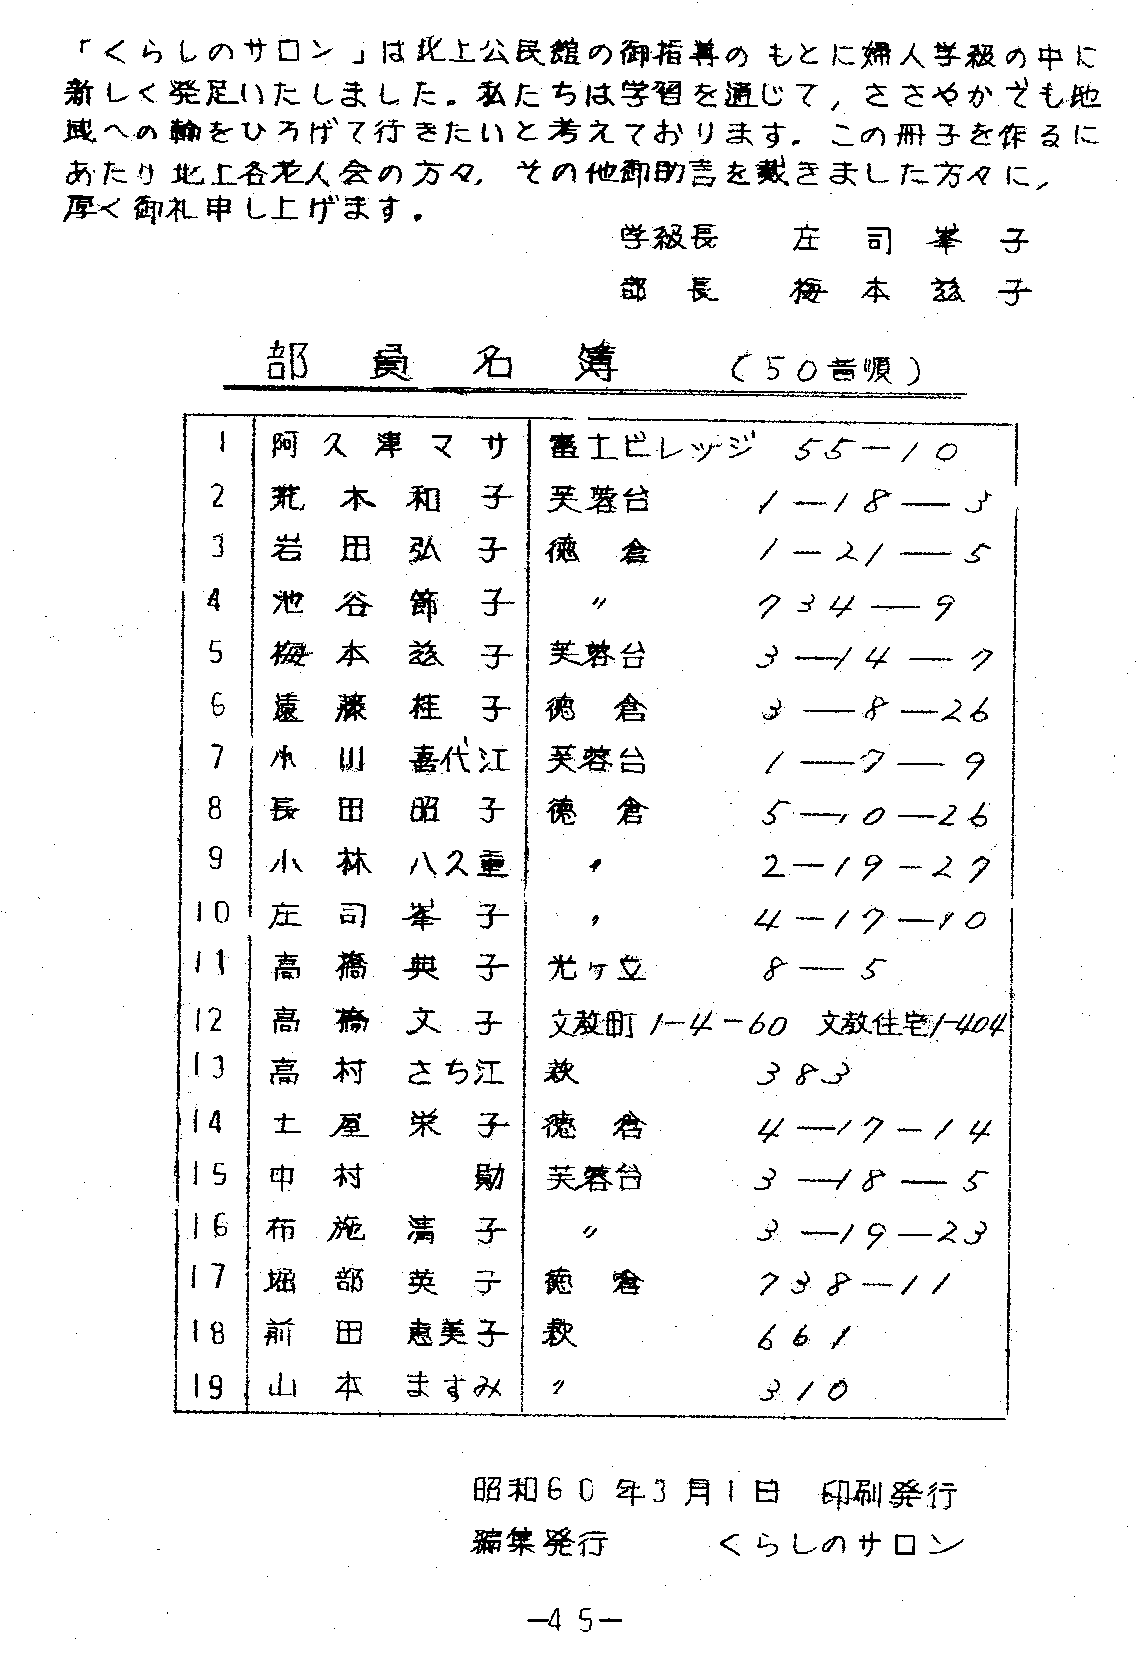 「くらしのサロン」は北上公民館の御指導のもとに婦人学級の中に
新しく発足いたしました。私たちは学習を通じて，ささやかでも地
域への輪をひろげて行きたいと考えております。この冊子を作るに
あたり北上各老人会の方々，その他御助言を戴きました方々に，
厚く御礼申し上げます。
学級長 庄司峯子
部長 梅本玆子
部員名簿 (50音順)
1 阿久津マサ 富士ビレッジ 55-10
2 荒木和子 芙蓉台 1-18-3
3 岩田弘子 徳倉 1-21-5
4 池谷節子 〃 734-9
5 梅本玆子 芙蓉台 3-14-7
6 遠藤桂子 徳倉 3-8-26
7 小川喜代江 芙蓉台 1-7-9
8 長田昭子 徳倉 5-10-26
9 小林八久重 〃 2-19-27
10 庄司峯子 〃 4-17-10
11 高橋典子 光ヶ丘 8-5
12 高橋文子 文教町1-4-60 文教住宅1-404
13 高村さち江 萩 383
14 土屋栄子 徳倉 4-17-14
15 中村勛 芙蓉台 3-18-5
16 布施清子 〃 3-19-23
17 堀部英子 徳倉 738-11
18 前田恵美子 萩 661
19 山本ますみ 〃 310
昭和60年3月1日 印刷発行
編集発行 くらしのサロン
-45-